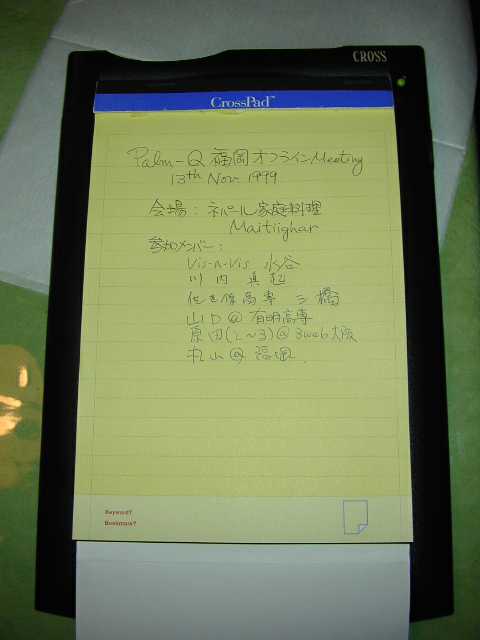 CROSS
CrossPad™
Palm-Q 福岡オフラインMeeting
13th Nov. 1999
会場：ネパール家庭料理
Maitiighar
参加メンバー：
Vis-a-Vis 水谷
川内 真
高専 三橋
山口@有明高専
原田(2~3)@3web大阪
丸山@福岡
Keyword?
Bookmark?